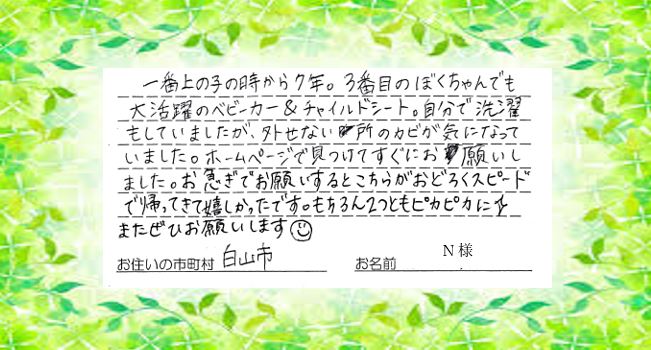 一番上の子の時から7年。3番目のぼくちゃんでも
大活躍のベビーカー&チャイルドシート。自分で洗濯
もしていましたが、外せない所のカビが気になって
いました。ホームページで見つけてすぐにお願いし
ました。お急ぎでお願いするとこちらがおどろくスピード
で帰ってきて嬉しかったです。もちろん2つともピカピカに☆
またぜひお願いします☺
お住いの市町村 白山市 お名前 N様